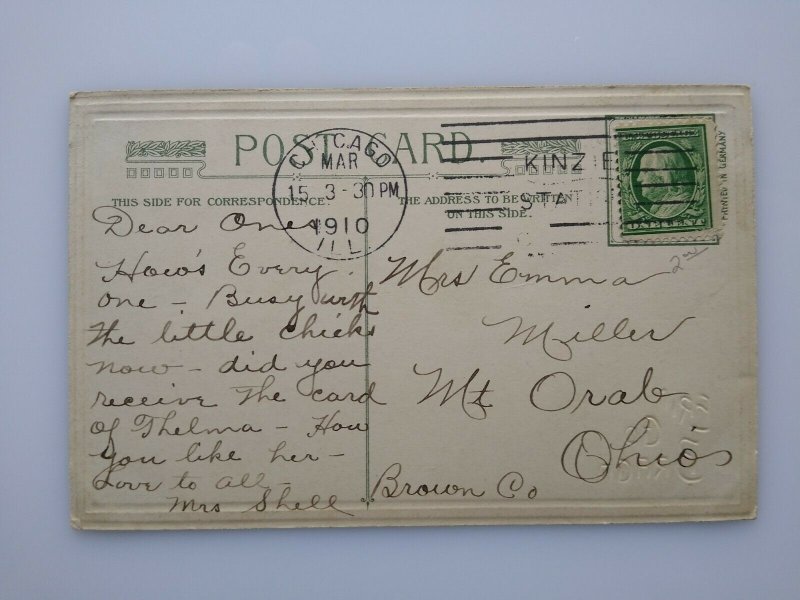 POST CARD
CHICAGO
MAR
15 3-30 PM
1910
ILL.
KINZIE
STA
ONE CENT
PRINTED IN GERMANY
THIS SIDE FOR CORRESPONDENCE
THE ADDRESS TO BE WRITTEN
ON THIS SIDE.
Dear Ones
How's Every
one - Busy with
the little chicks
now - did you
receive the card
of Thelma - How
you like her -
Love to all -
Mrs Shell
Mrs Emma
Miller
Mt Orab
Ohio
Brown Co